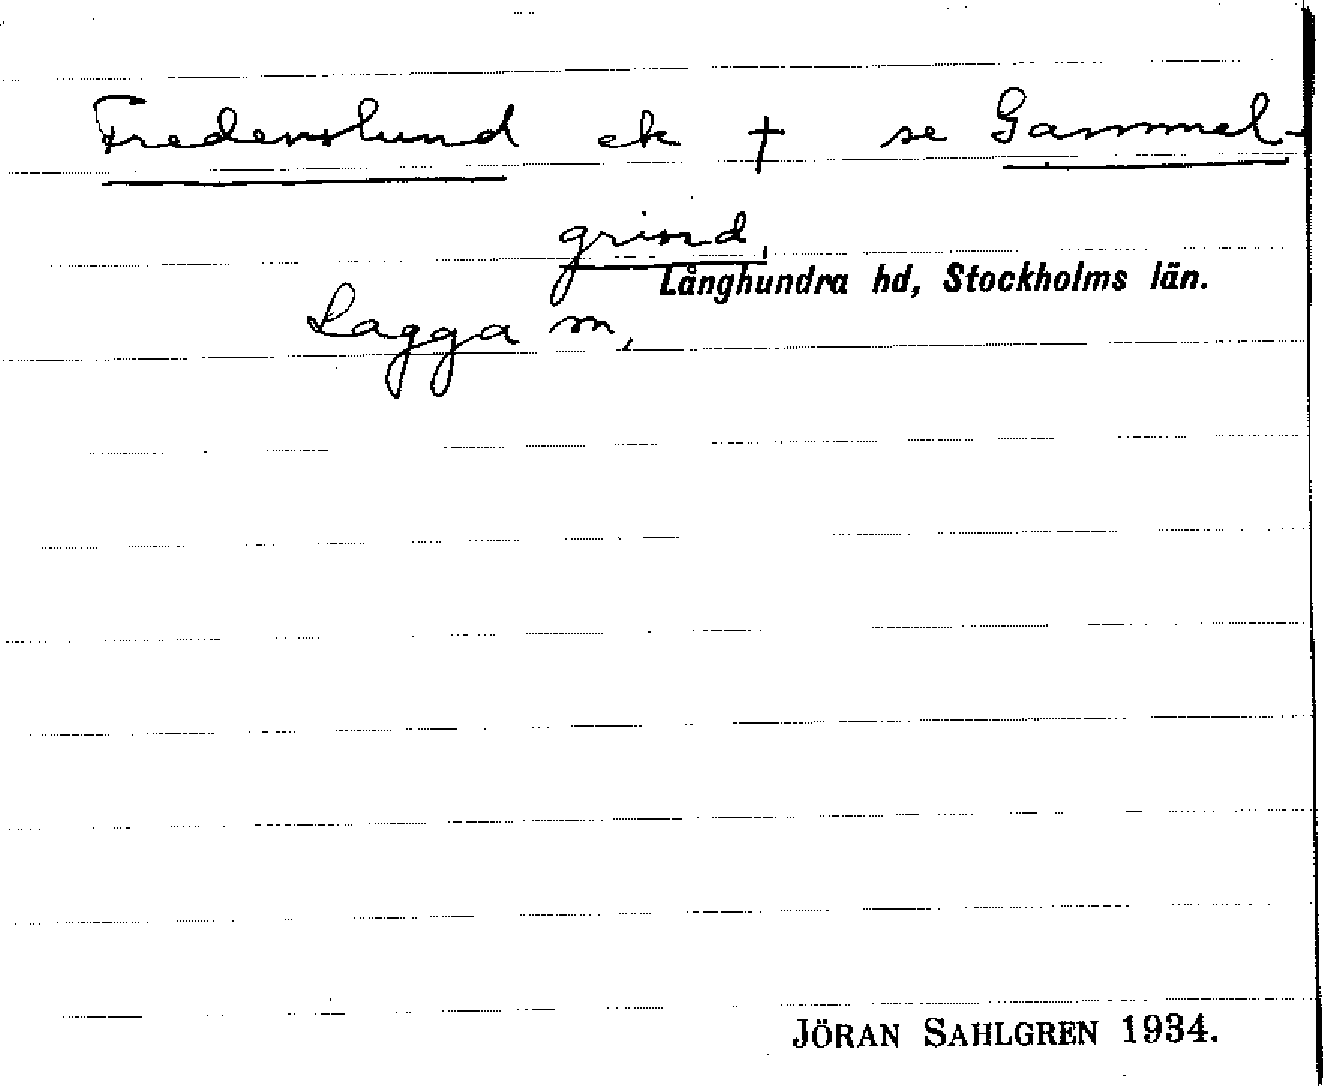 Fredenslund ek † se Gammel-
grind,
Långhundra hd, Stockholms län.
Lagga m,
JÖRAN SAHLGREN 1934.